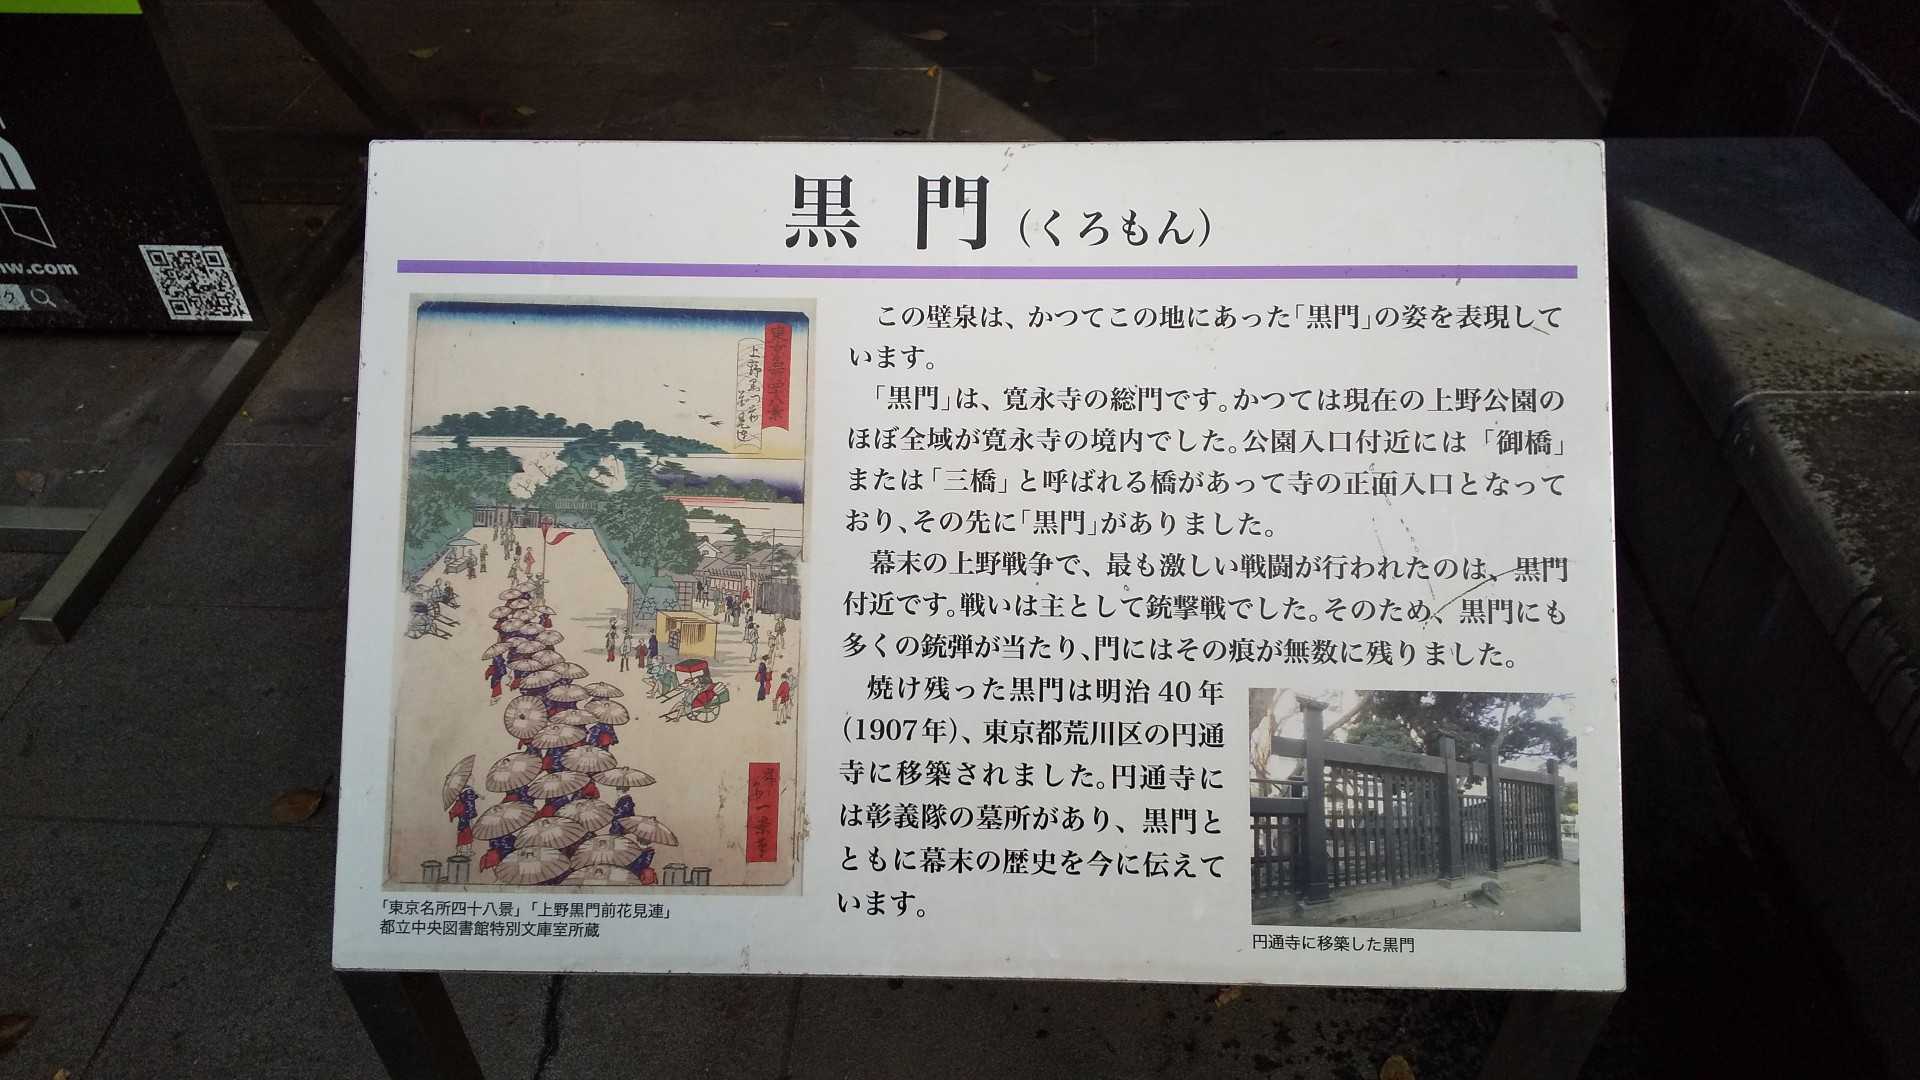 黒 門 (くろもん)
この壁泉は、かつてこの地にあった「黒門」の姿を表現して
います。
「黒門」は、寛永寺の総門です。かつては現在の上野公園の
ほぼ全域が寛永寺の境内でした。公園入口付近には「御橋」
または「三橋」と呼ばれる橋があって寺の正面入口となって
おり、その先に「黒門」がありました。
幕末の上野戦争で、最も激しい戦闘が行われたのは、黒門
付近です。戦いは主として銃撃戦でした。そのため、黒門にも
多くの銃弾が当たり、門にはその痕が無数に残りました。
焼け残った黒門は明治 40 年
(1907年)、東京都荒川区の円通
寺に移築されました。円通寺に
は彰義隊の墓所があり、黒門と
ともに幕末の歴史を今に伝えて
います。
「東京名所四十八景」「上野黒門前花見連」
都立中央図書館特別文庫室所蔵
円通寺に移築した黒門
nw.com
ク